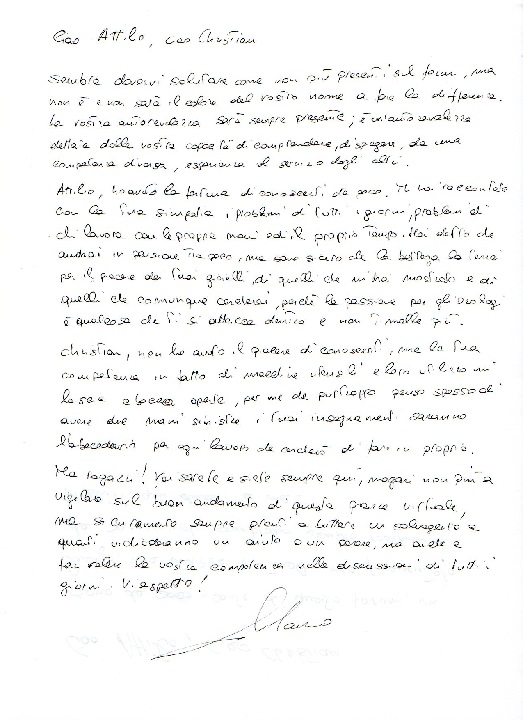 Ciao Attilio, ciao Christian
Sembra doveroso salutare come non più presenti sul forum, ma
non è e non sarà il colore del vostro nome a fare la differenza.
La vostra autorevolezza sarà sempre presente, è intanto
dettata dalla vostra capacità di comprendere, di spiegare, da una
competenza diversa, esperienza al servizio degli altri.
Attilio, ho avuto la fortuna di conoscerti da poco. Mi hai raccontato
con la tua simpatia i problemi di tutti i giorni, problemi di
chi lavora con le proprie mani ed il proprio tempo. Hai detto che
andrai in pensione tra poco, ma sono sicuro che la bottega la terrai
per il piacere dei tuoi gioielli, di quelli che mi hai mostrato e di
quelli che comunque cercherai, perché la passione per gli orologi
è qualcosa che ti si attacca dentro e non ti molla più.
Christian, non ho avuto il piacere di conoscerti, ma la tua
competenza in fatto di macchine utensili e loro utilizzo mi
lascia a bocca aperta, per me che purtroppo penso spesso di
avere due mani sinistre i tuoi insegnamenti saranno
l'abecedario per ogni lavoro che cercherò di fare in proprio.
Ma ragazzi! Voi sarete e siete sempre qui, magari non più a
vigilare sul buon andamento di questa piazza virtuale,
ma sicuramente sempre pronti a buttare un salvagente a
quanti vi chiederanno un aiuto o un parere, ma anche a
far valere la vostra competenza nelle discussioni di tutti i
giorni. Vi aspetto!